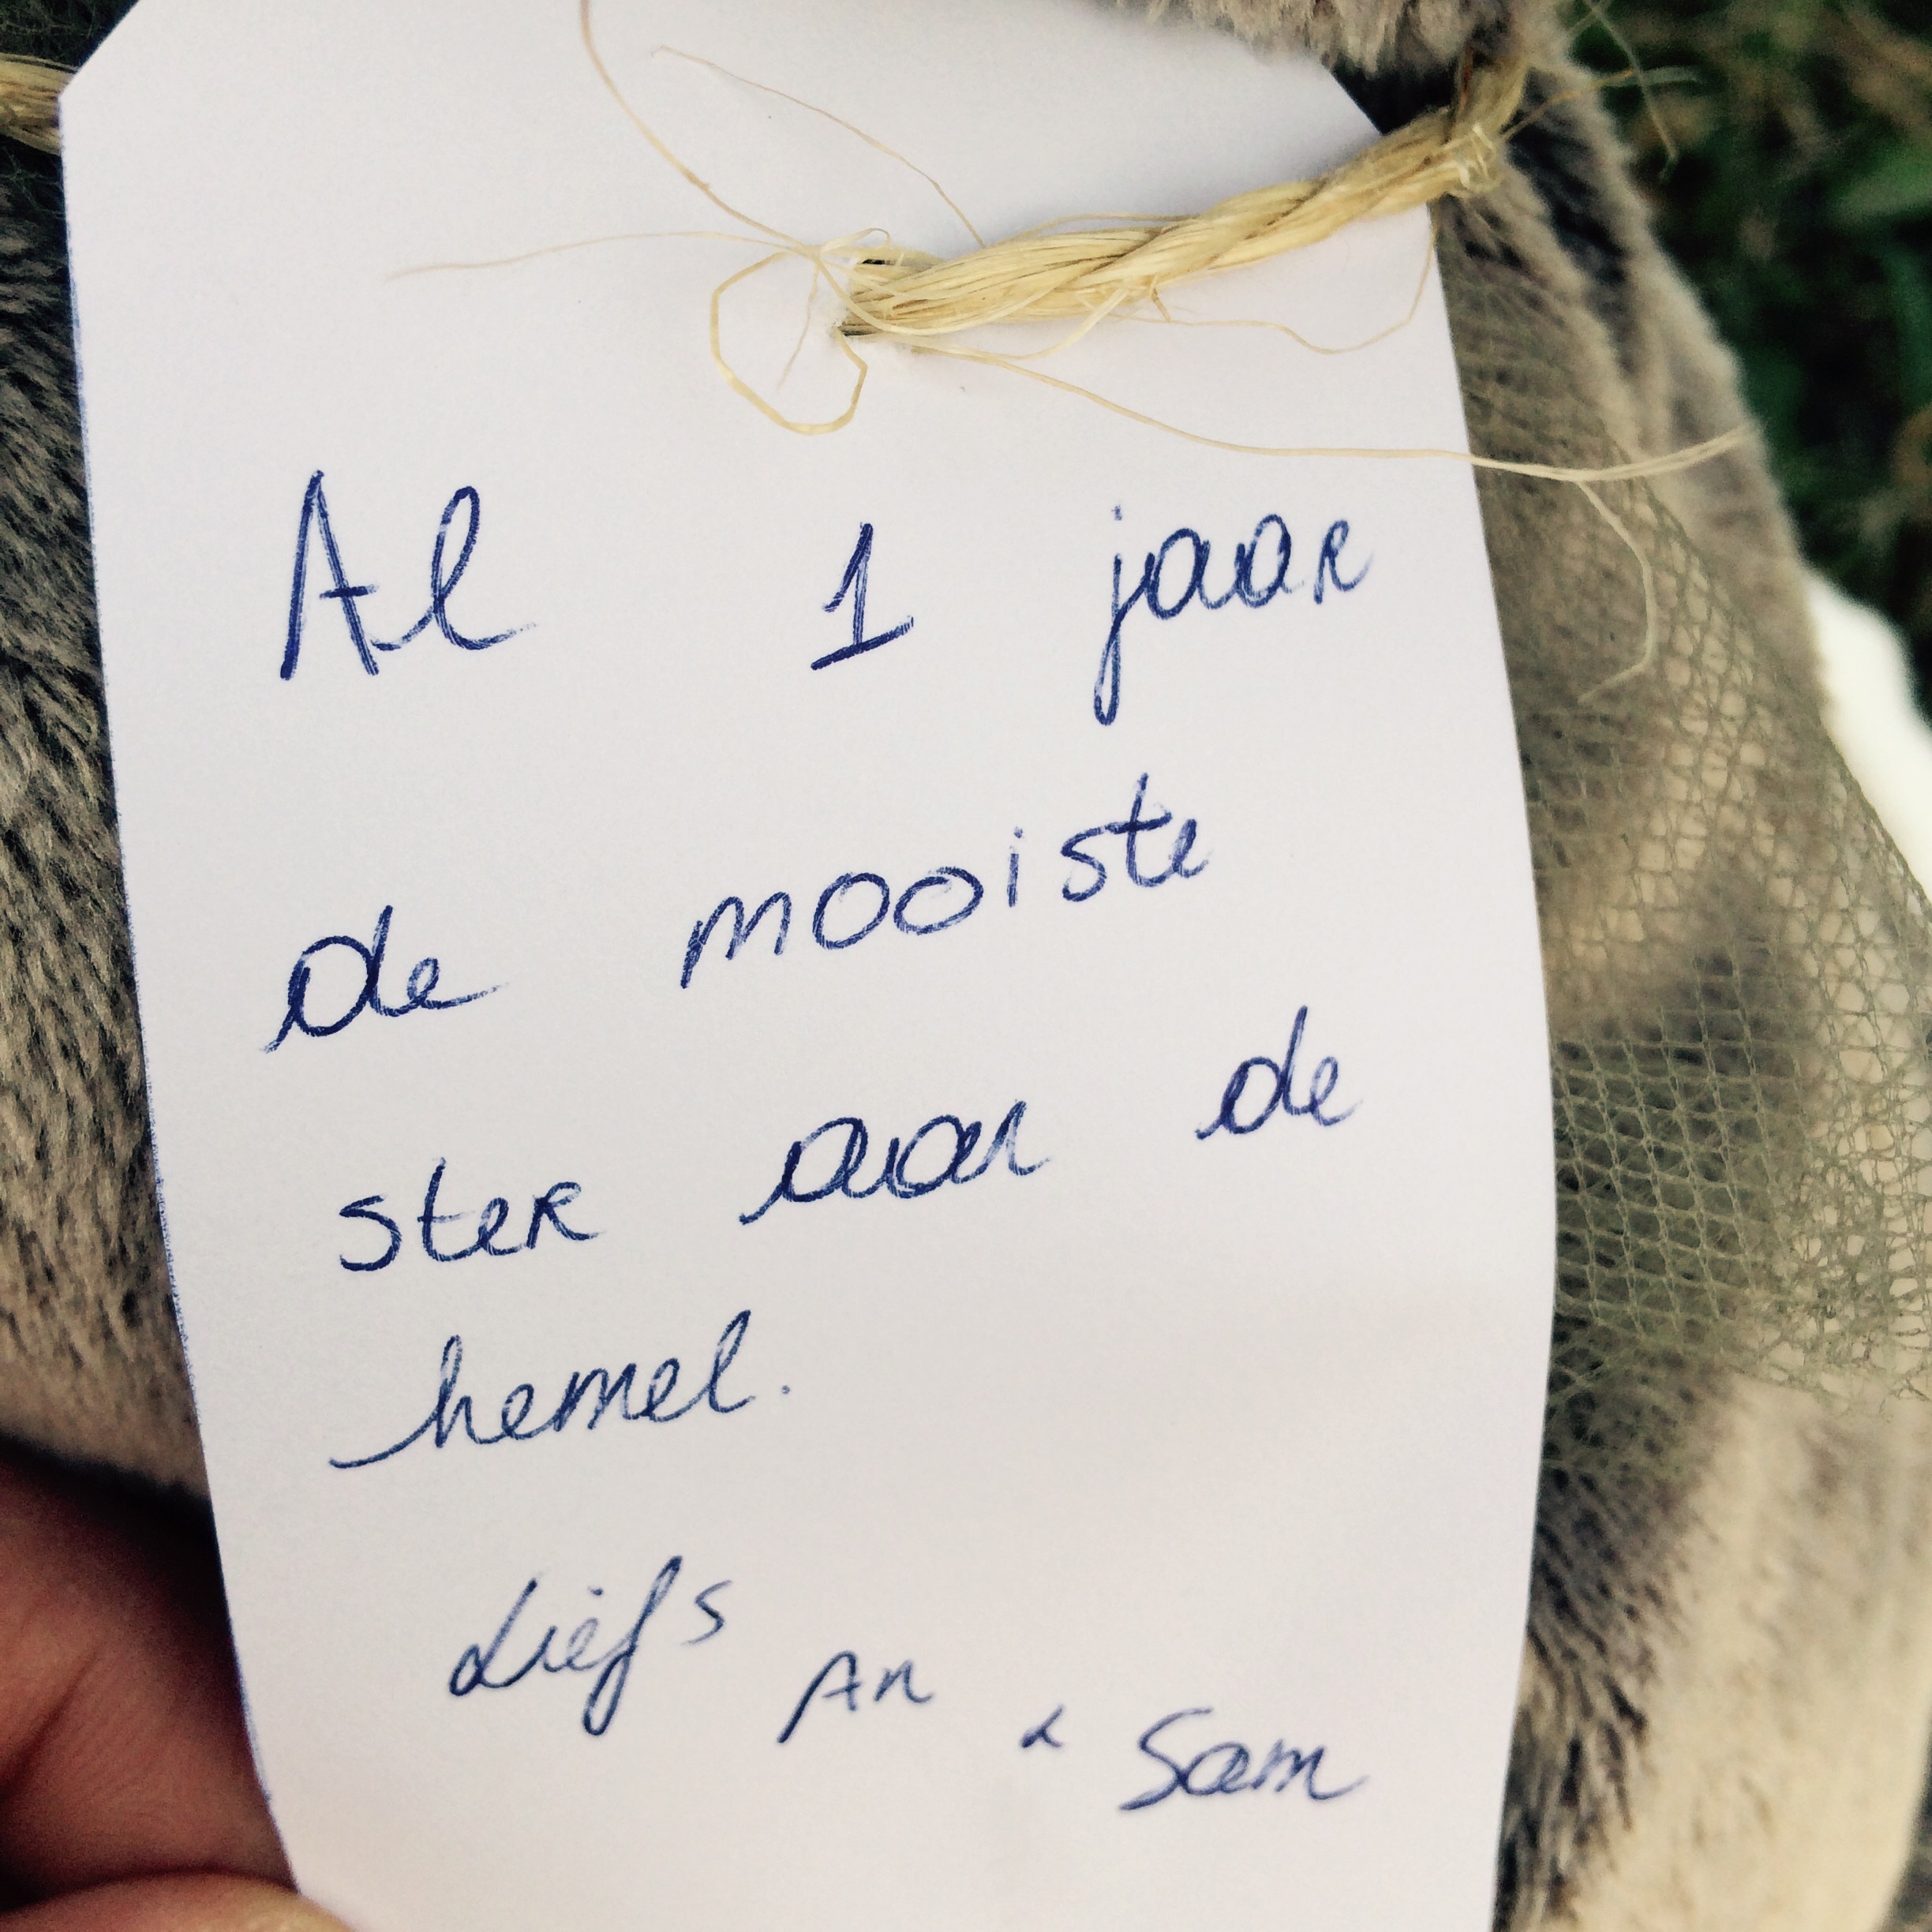 Al 1 jaar
de mooiste
ster aan de
hemel.
Liefs An & Sam